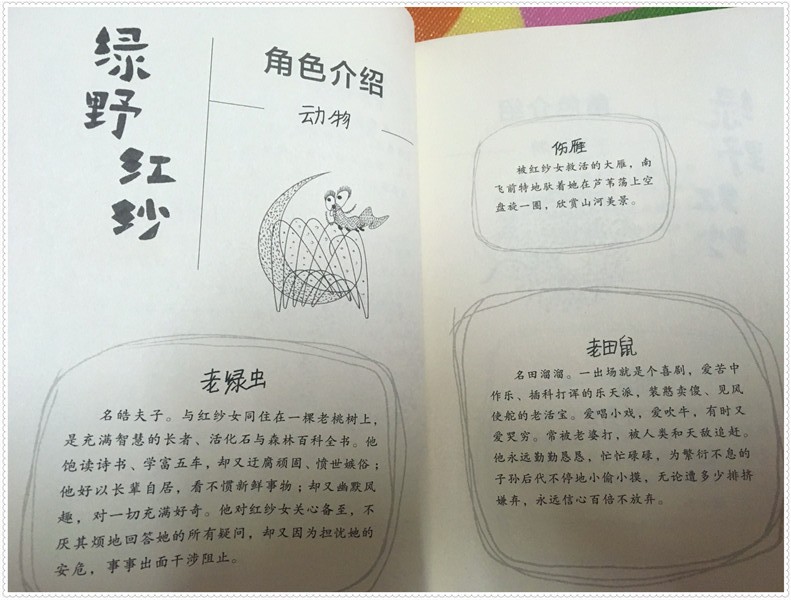 绿
野
红
纱
角色介绍
动物
老绿虫
名皓夫子。与红纱女同住在一棵老桃树上，
是充满智慧的长者、活化石与森林百科全书。他
饱读诗书、学富五车，却又迂腐顽固、愤世嫉俗；
他好以长辈自居，看不惯新鲜事物；却又幽默风
趣，对一切充满好奇。他对红纱女关心备至，不
厌其烦地回答她的所有疑问，却又因为担忧她的
安危，事事出面干涉阻止。
伤雁
被红纱女救活的大雁，南
飞前特地驮着她在芦苇荡上空
盘旋一圈，欣赏山河美景。
老田鼠
名田溜溜。一出场就是个喜剧，爱苦中
作乐、插科打诨的乐天派，装憨卖傻、见风
使舵的老活宝。爱唱小戏，爱吹牛，有时又
爱哭穷。常被老婆打，被人类和天敌追赶。
他永远勤勤恳恳，忙忙碌碌，为繁衍不息的
子孙后代不停地小偷小摸，无论遭多少排挤
嫌弃，永远信心百倍不放弃。